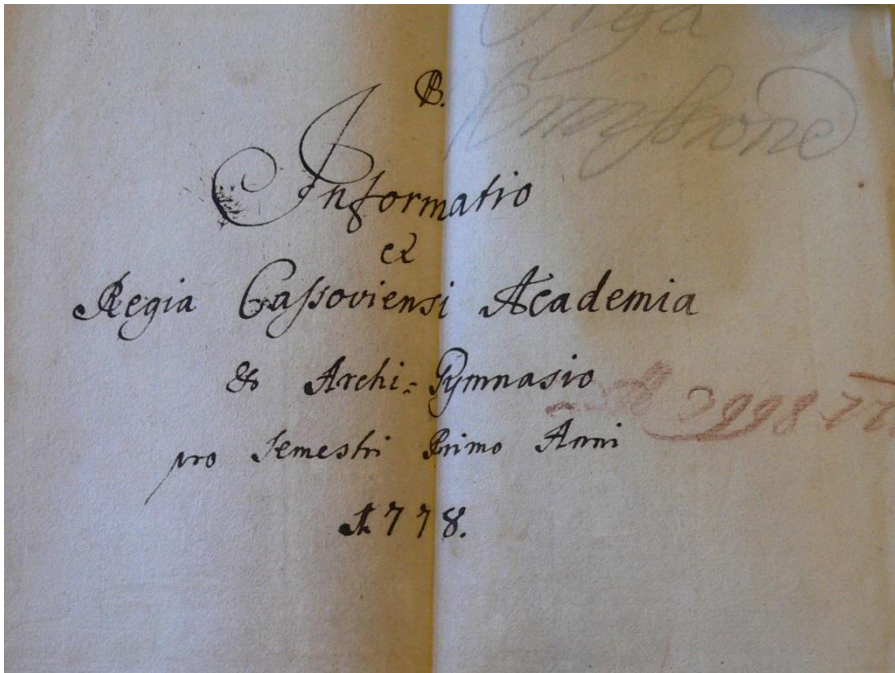 B.
Informatio
ex
Regia Caſsoviensi Academia
& Archi-Gymnasio
pro Semestri Primo Anni
1778.